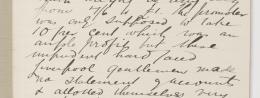 whom 4/6 of the promoter
was only supposed to take
10 per cent which was an
ample profit but these
impudent hard faced
Liverpool Gentlemen made
no statement of accounts
& allotted themselves very